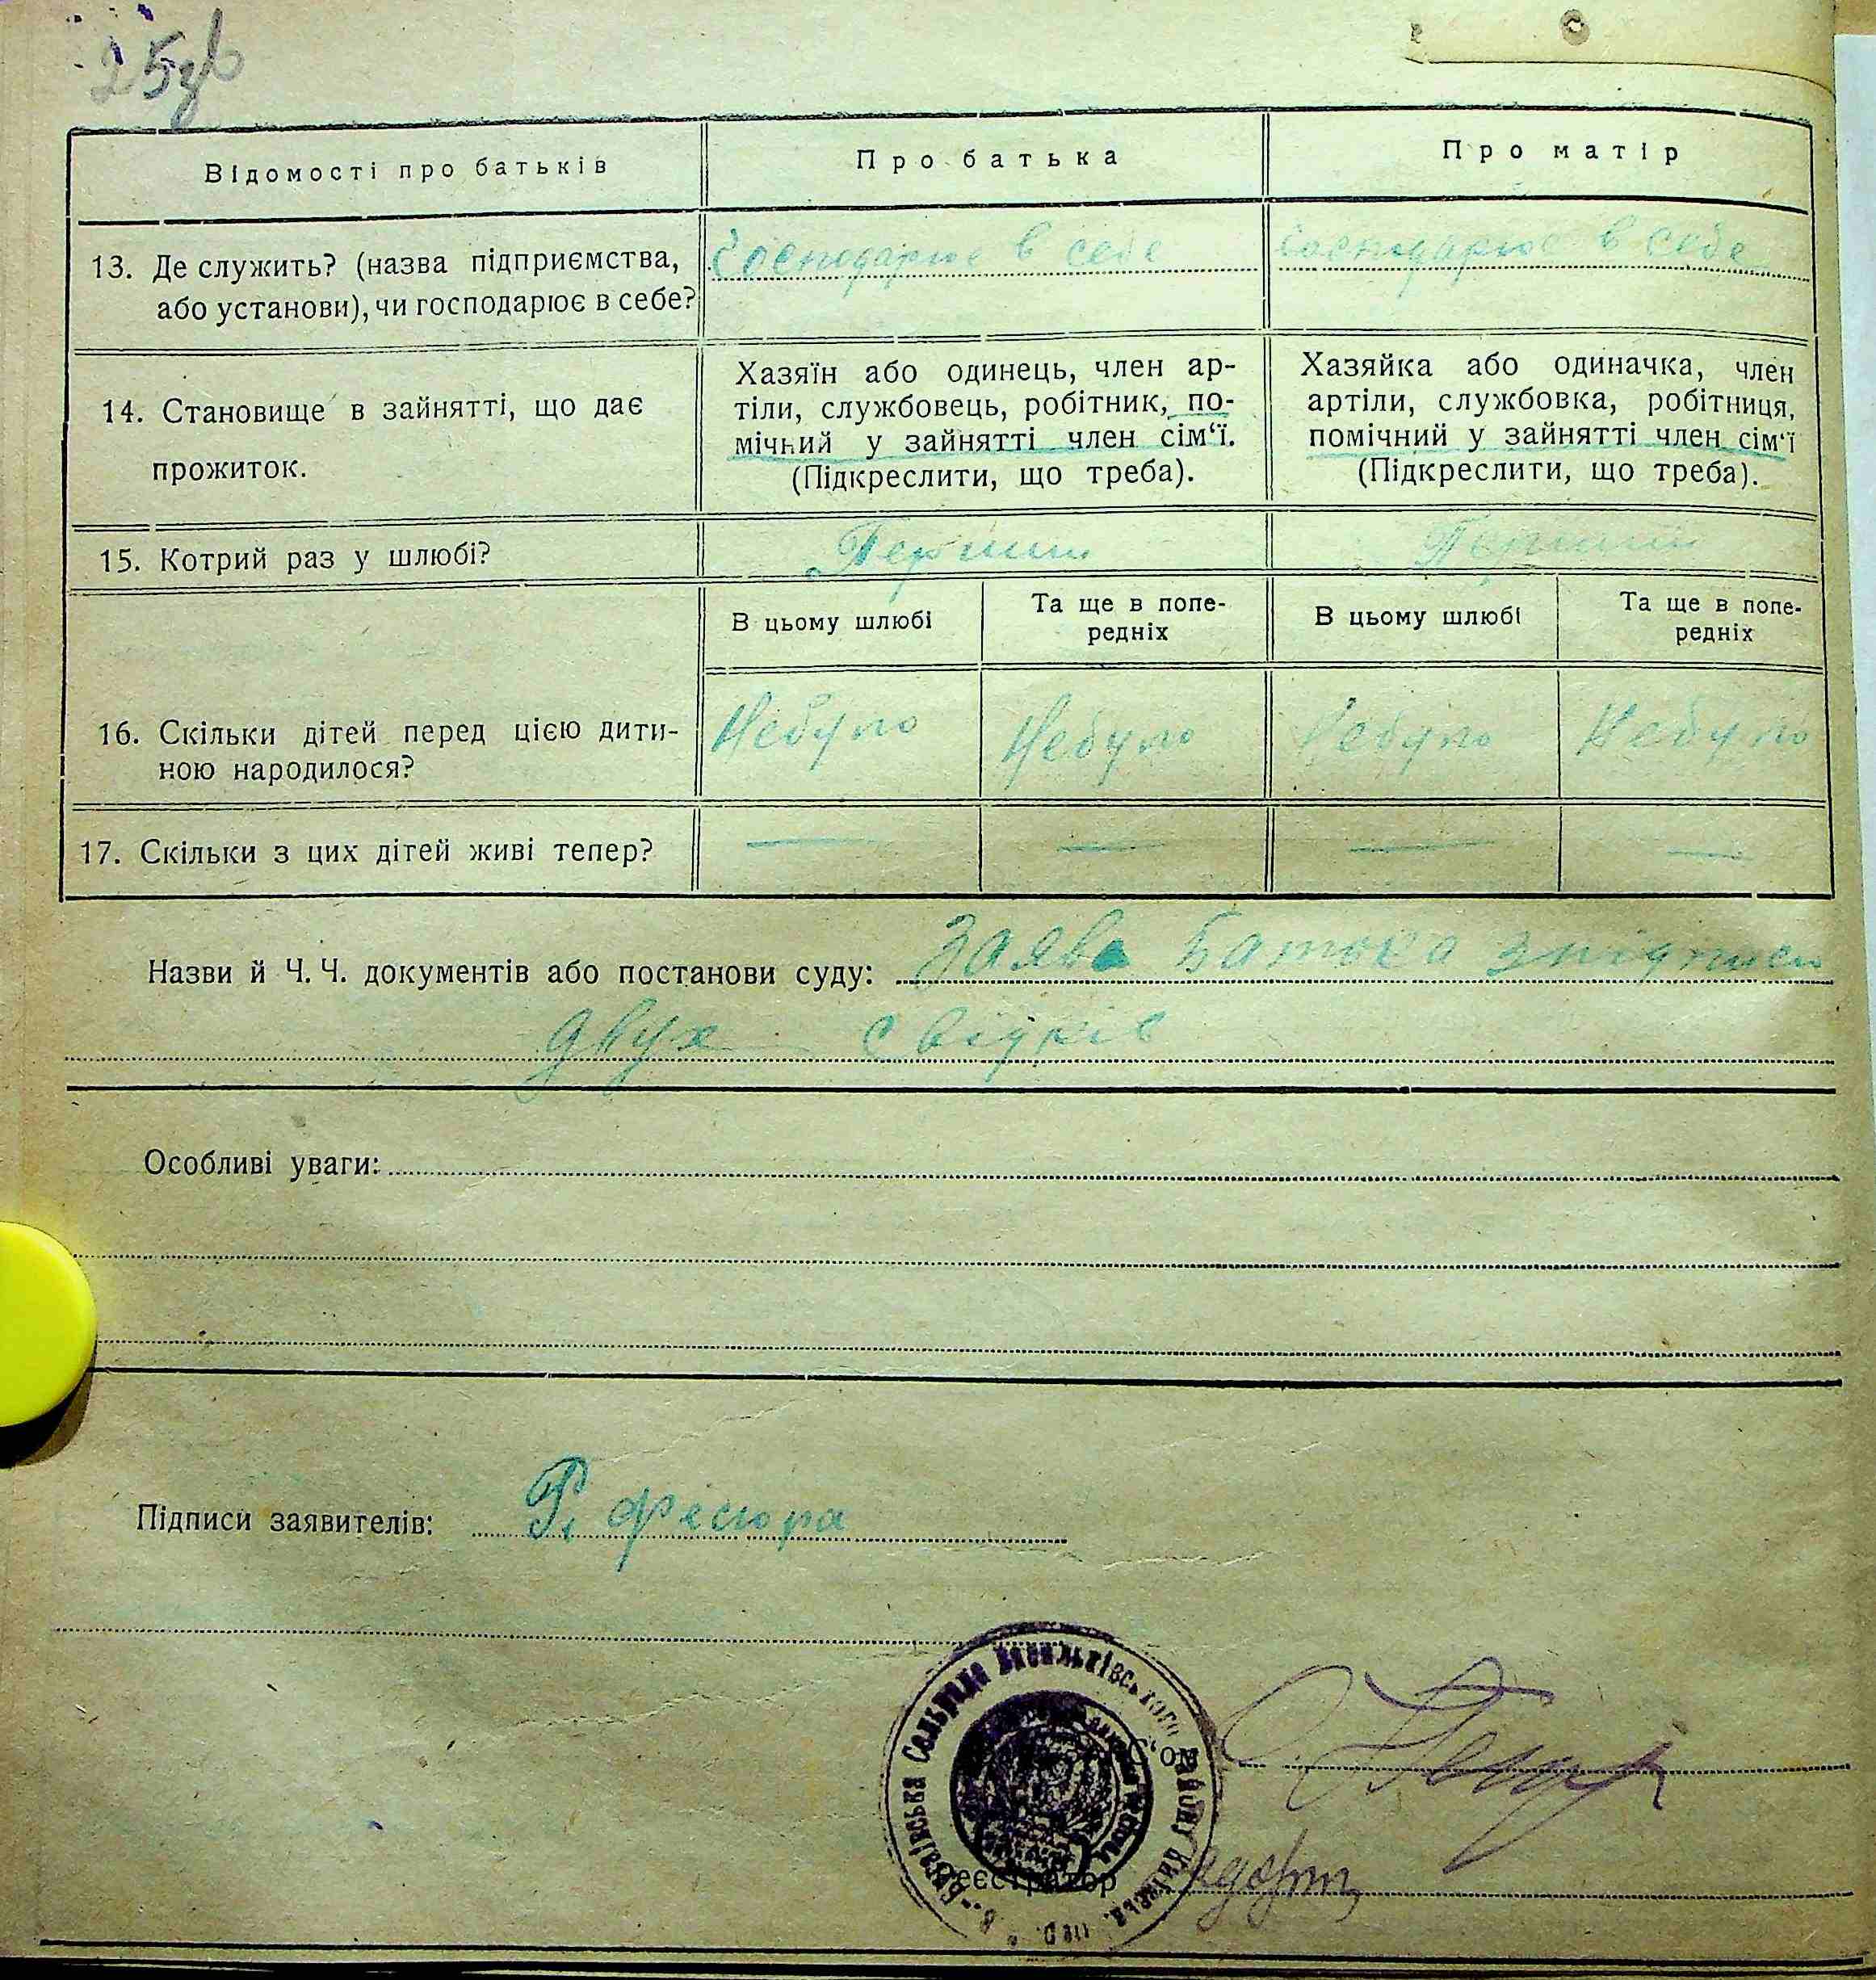 25зв
Відомості про батьків
Про батька
Про матір
13. Де служить? (назва підприємства,
або установи), чи господарює в себе?
Господарює в себе
Господарює в себе
14. Становище в зайнятті, що дає
прожиток.
Хазяїн або одинець, член ар-
тіли, службовець, робітник, по-
мічний у зайнятті член сім‘ї.
(Підкреслити, що треба).
Хазяйка або одиначка, член
артіли, службовка, робітниця,
помічний у зайнятті член сім‘ї
(Підкреслити, що треба).
15. Котрий раз у шлюбі?
Перший
Перший
В цьому шлюбі
Та ще в попе-
редніх
В цьому шлюбі
Та ще в попе-
редніх
16. Скільки дітей перед цією дити-
ною народилося?
Небуло
Небуло
Небуло
Небуло
17. Скільки з цих дітей живі тепер?
— — — —
Назви й Ч. Ч. документів або постанови суду: Заява Батька
двух свідків
Особливі уваги:
Підписи заявителів: Р. Фесюра
Сельрада Васильківського району Київськ.
Реєстратор